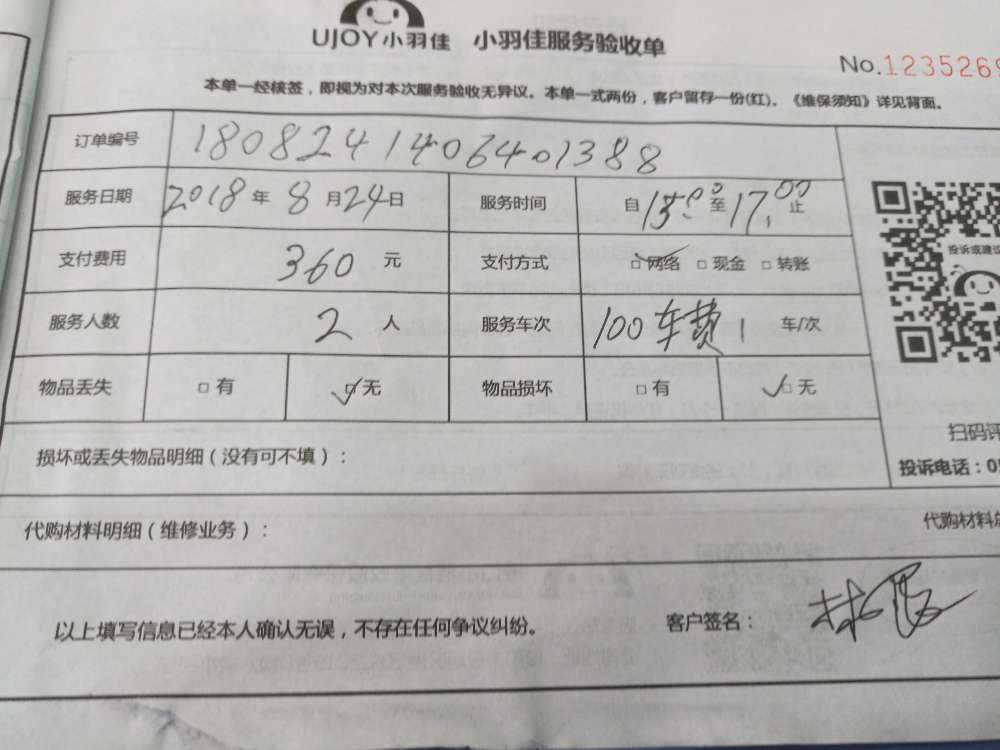 UJOY小羽佳 小羽佳服务验收单
No.1235269
本单一经核签，即视为对本次服务验收无异议。本单一式两份，客户留存一份(红)。《维保须知》详见背面。
订单编号 1808241406401388
服务日期 2018年8月24日 服务时间 自15:00至17:00止
支付费用 360元 支付方式 □网络 □现金 □转账
服务人数 2人 服务车次 100车费1车/次
物品丢失 □有 □无 物品损坏 □有 □无
投诉或建议
扫码评
损坏或丢失物品明细（没有可不填）：
投诉电话：05
代购材料明细（维修业务）：
代购材料总
以上填写信息已经本人确认无误，不存在任何争议纠纷。
客户签名：林